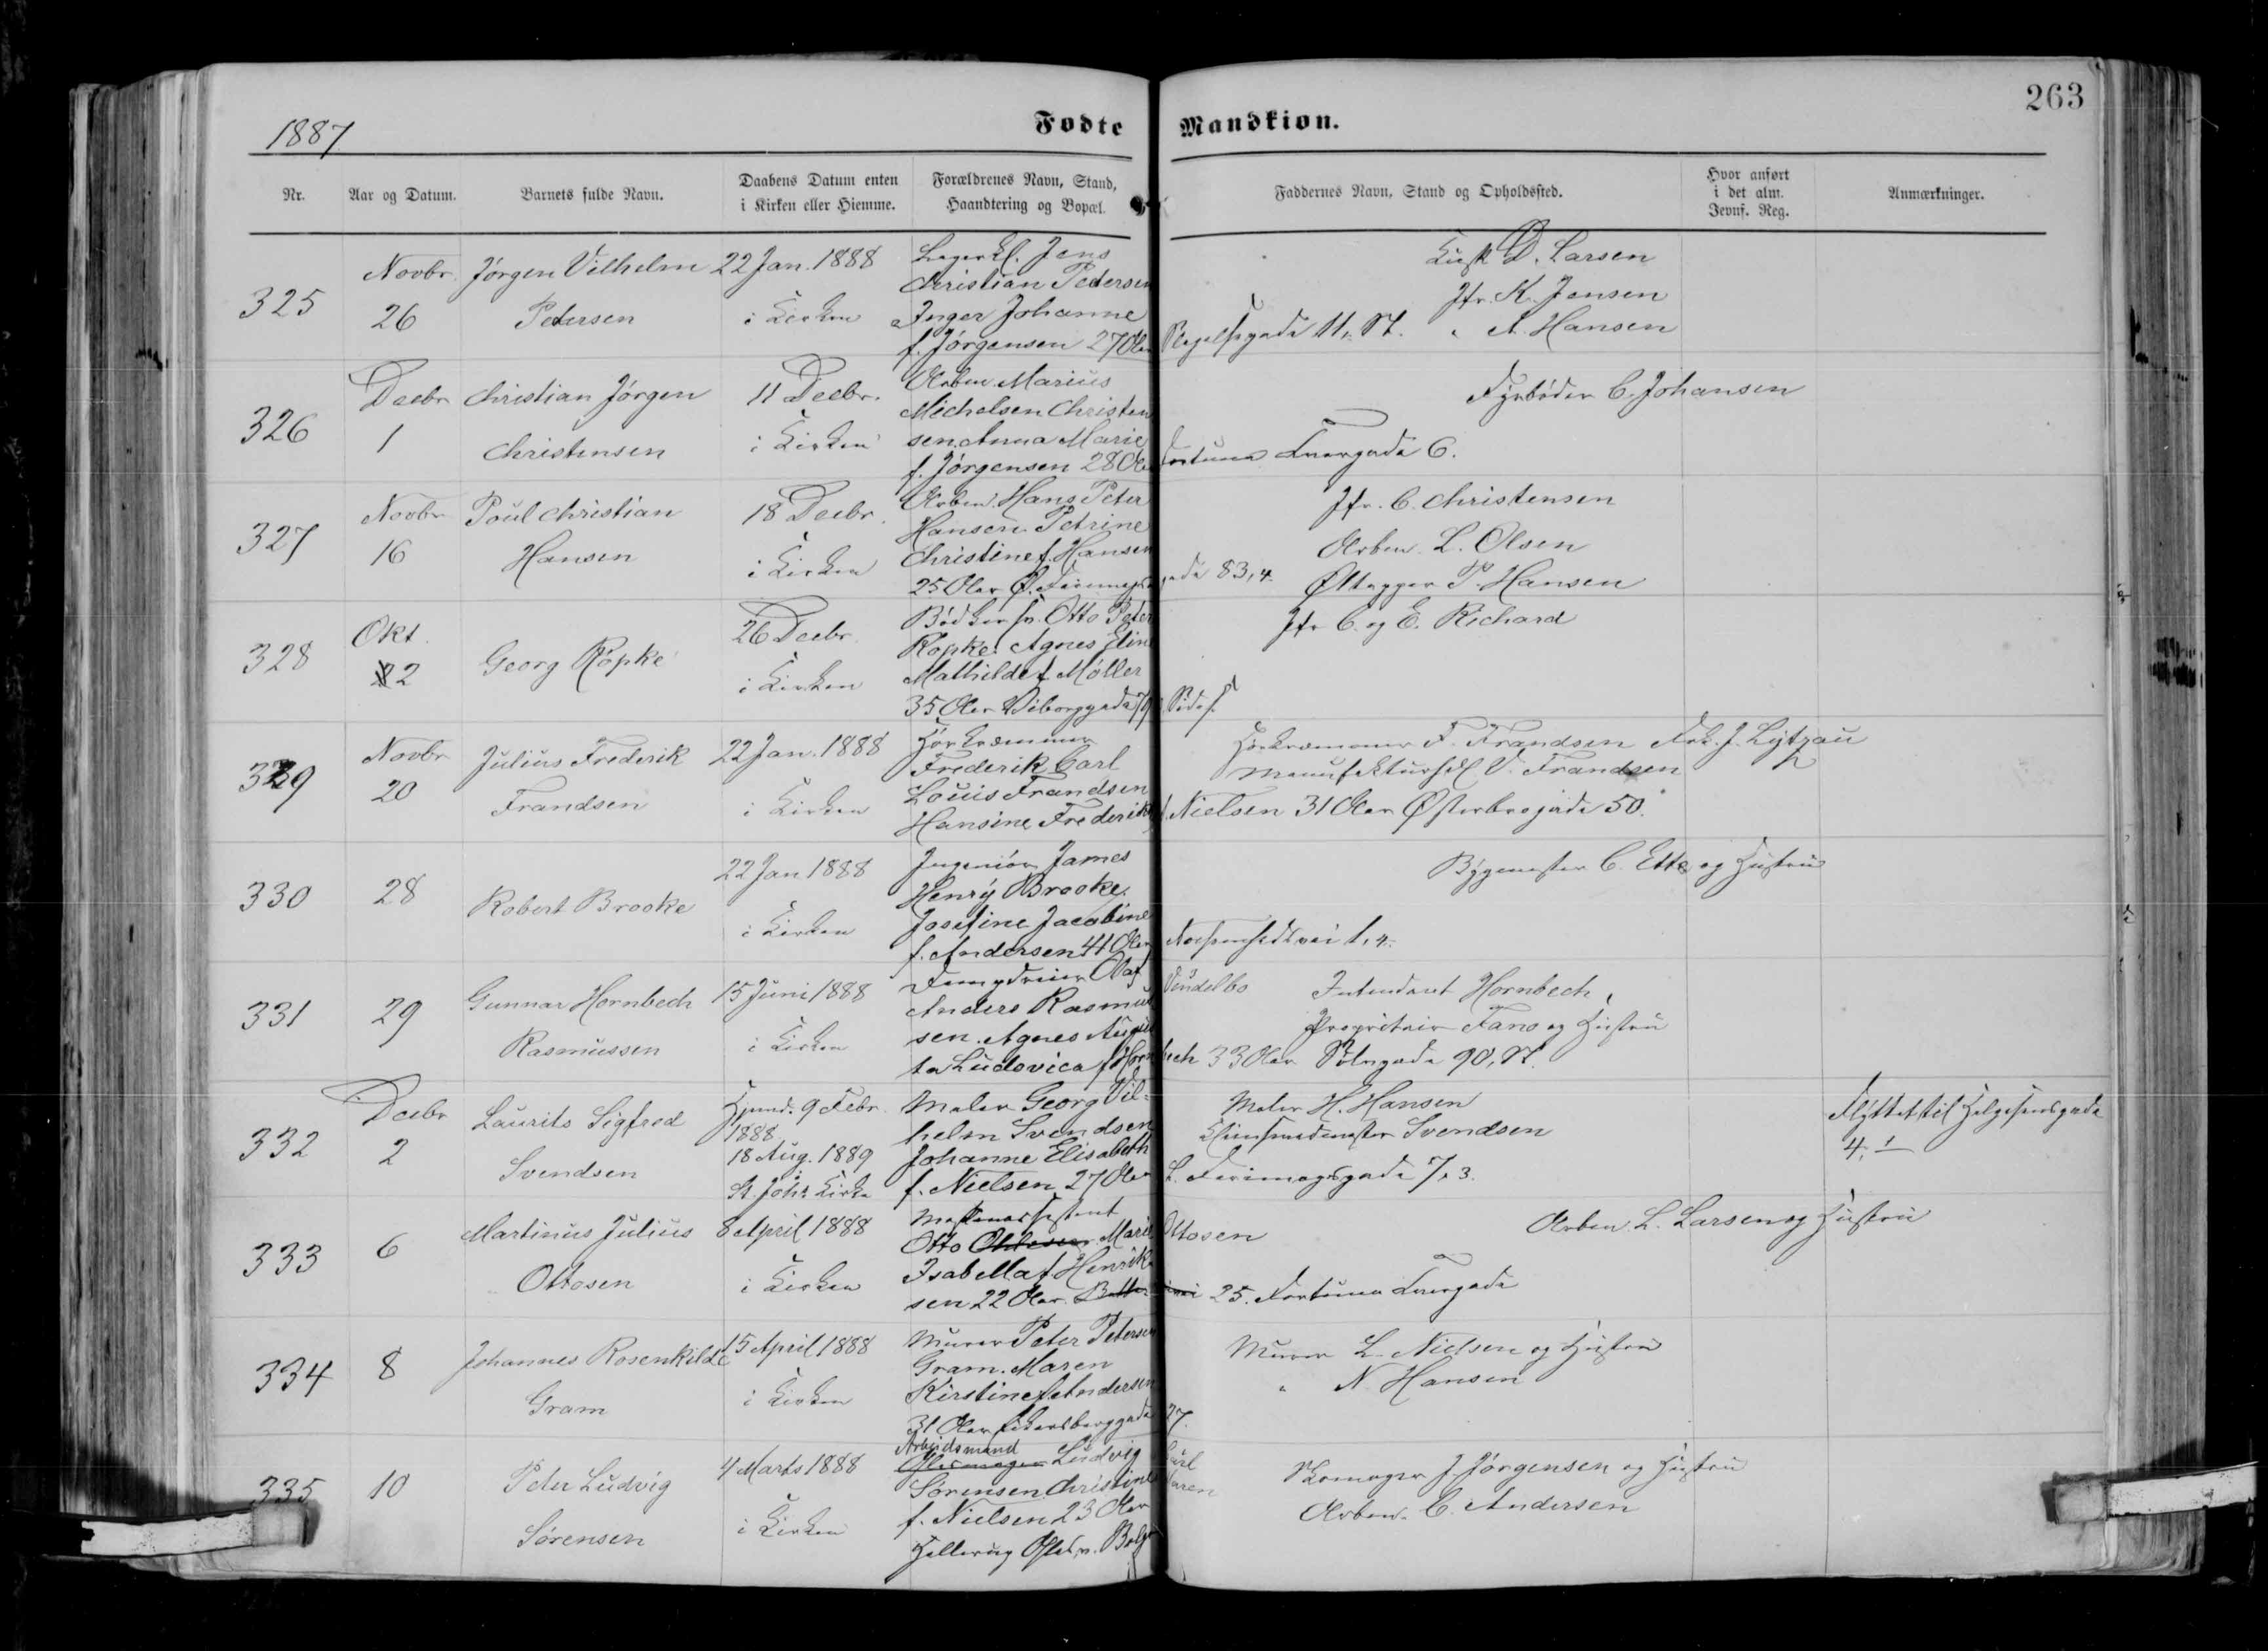 263
1887
Fødte Mandkiøn.
Nr.
Aar og Datum.
Barnets fulde Navn.
Daabens Datum enten
i Kirken eller Hiemme.
Forældrenes Navn, Stand,
Haandtering og Bopæl.
Faddernes Navn, Stand og Opholdssted.
Hvor anført
i det alm.
Jevnf. Reg.
Anmærkninger.
325
Novbr.
26
Jørgen Vilhelm
Petersen
22 Jan. 1888
i Kirken
Jens
Christian Petersen
Inger Johanne
f. Jørgensen 27 Olav
11, St.
Kusk D. Larsen
Jfr. K. Jensen
" A. Hansen
326
Decbr
1
Christian Jørgen
Christensen
11 Decbr.
i Kirken
Arbm. Marius
Michelsen Christen
sen. Anna Marie
f. Jørgensen 28
Fortuna Tvergade 6.
Fyrbøder C. Johansen
327
Novbr
16
Poul Christian
Hansen
18 Decbr.
i Kirken
Arbm. Hans Peter
Hansen. Petrine
Christine f. Hansen
25 Ø. Farimagsgade 83, 4.
Jfr. C. Christensen
Arbm. L. Olsen
Øltapper P. Hansen
328
Okt.
22
Georg Röpke
26 Decbr.
i Kirken
Bødkersv. Otto Peter
Röpke. Agnes Eline
Mathilde f. Møller
35 Viborggade
Jfr C. og E. Richard
329
Novbr
20
Julius Frederik
Frandsen
22 Jan. 1888
i Kirken
Hørkræmmer
Frederik Carl
Louis Frandsen
Hansine Frederikke
f. Nielsen 31 Østerbrogade 50.
Hørkræmmer F. Frandsen Frk. J. Lytzau
V. Frandsen
330
28
Robert Brooke
22 Jan 1888
i Kirken
Ingeniør James
Henry Brooke.
Josefine Jacobine
f. Andersen 41
1, 4.
Bygmester C. Ette og Hustru
331
29
Gunnar Hornbech
Rasmussen
15 Juni 1888
i Kirken
Olaf Vendelbo
Anders Rasmus
sen. Agnes Augus
ta Ludovica f. Hornbech 33 Sølvgade 90, St.
Intendant Hornbech,
Proprietair Fano og Hustru
332
Decbr
2
Laurits Sigfred
Svendsen
Hjemd. 9 Febr.
1888
18 Aug. 1889
St. Johs Kirke
Maler Georg Vil-
helm Svendsen
Johanne Elisabeth
f. Nielsen 27
L. Farimagsgade 7, 3.
Maler H. Hansen
Svendsen
Flyttet til Helgesensgade
4, 1
333
6
Martinus Julius
Ottosen
8 April 1888
i Kirken
Maskinassistent
Otto Marie Ottosen
Isabella f. Henrik
sen 22
25. Fortuna Tvergade
Arbm L. Larsen og Hustru
334
8
Johannes Rosenkilde
Gram
15 April 1888
i Kirken
Murer Peter Petersen
Gram. Maren
Kirstine f. Andersen
31 27.
Murer L. Nielsen og Hustru
" N Hansen
335
10
Peter Ludvig
Sørensen
4 Marts 1888
i Kirken
Arbeidsmand
Ludvig Carl
Sørensen. Christine Maren
f. Nielsen 23
Hellerup
Skomager J. Jørgensen og Hustru
Arbm. C. Andersen